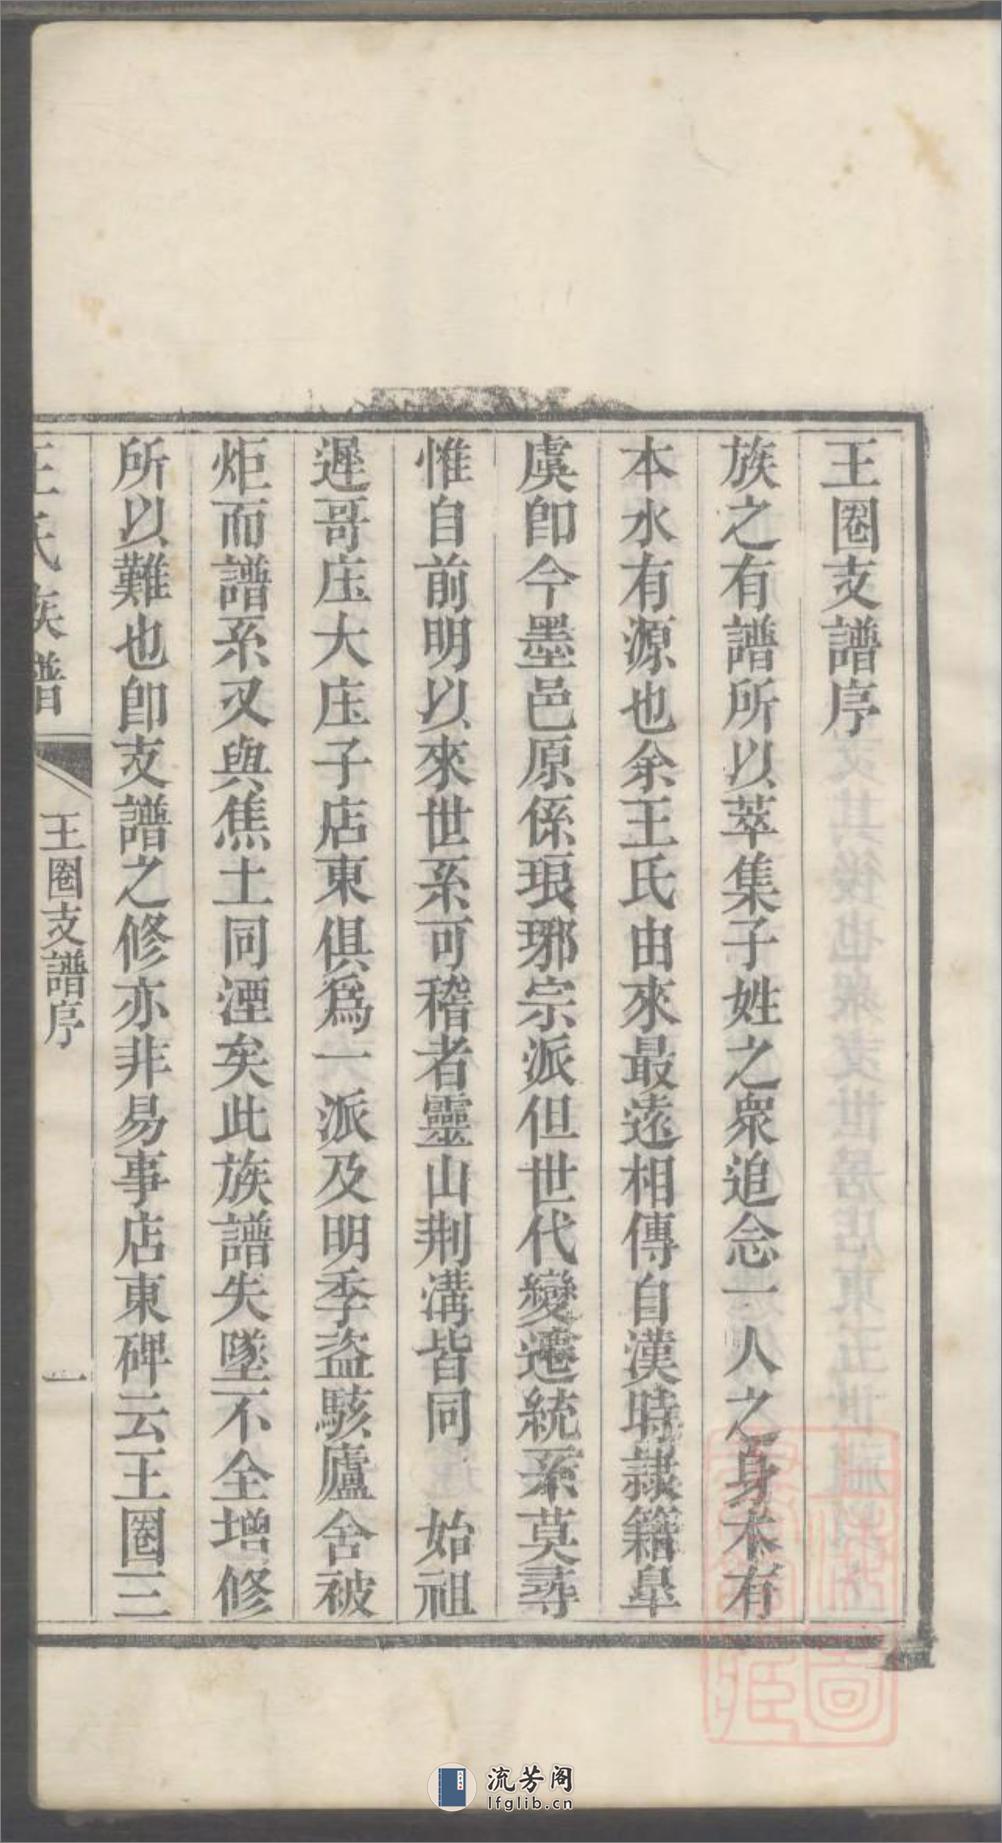 王圈支譜序
族之有譜所以萃集子姓之衆追念一人之身木有
本水有源也余王氏由來最遠相傳自漢時隷籍臯
虞卽今墨邑原係琅琊宗派但世代變遷統系莫尋
惟自前明以來世系可稽者靈山荆溝皆同　始祖
遲哥庄大庄子店東俱爲一派及明季盗駭廬舍被
炬而譜系又與焦土同湮矣此族譜失墜不全增修
所以難也卽支譜之修亦非易事店東碑云王圈三
王氏族譜
王圈支譜序
一
流芳阁
lfglib.cn